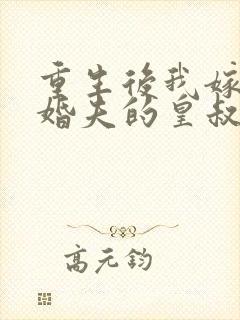 重生後我嫁
婚夫的皇叔
高元鈞